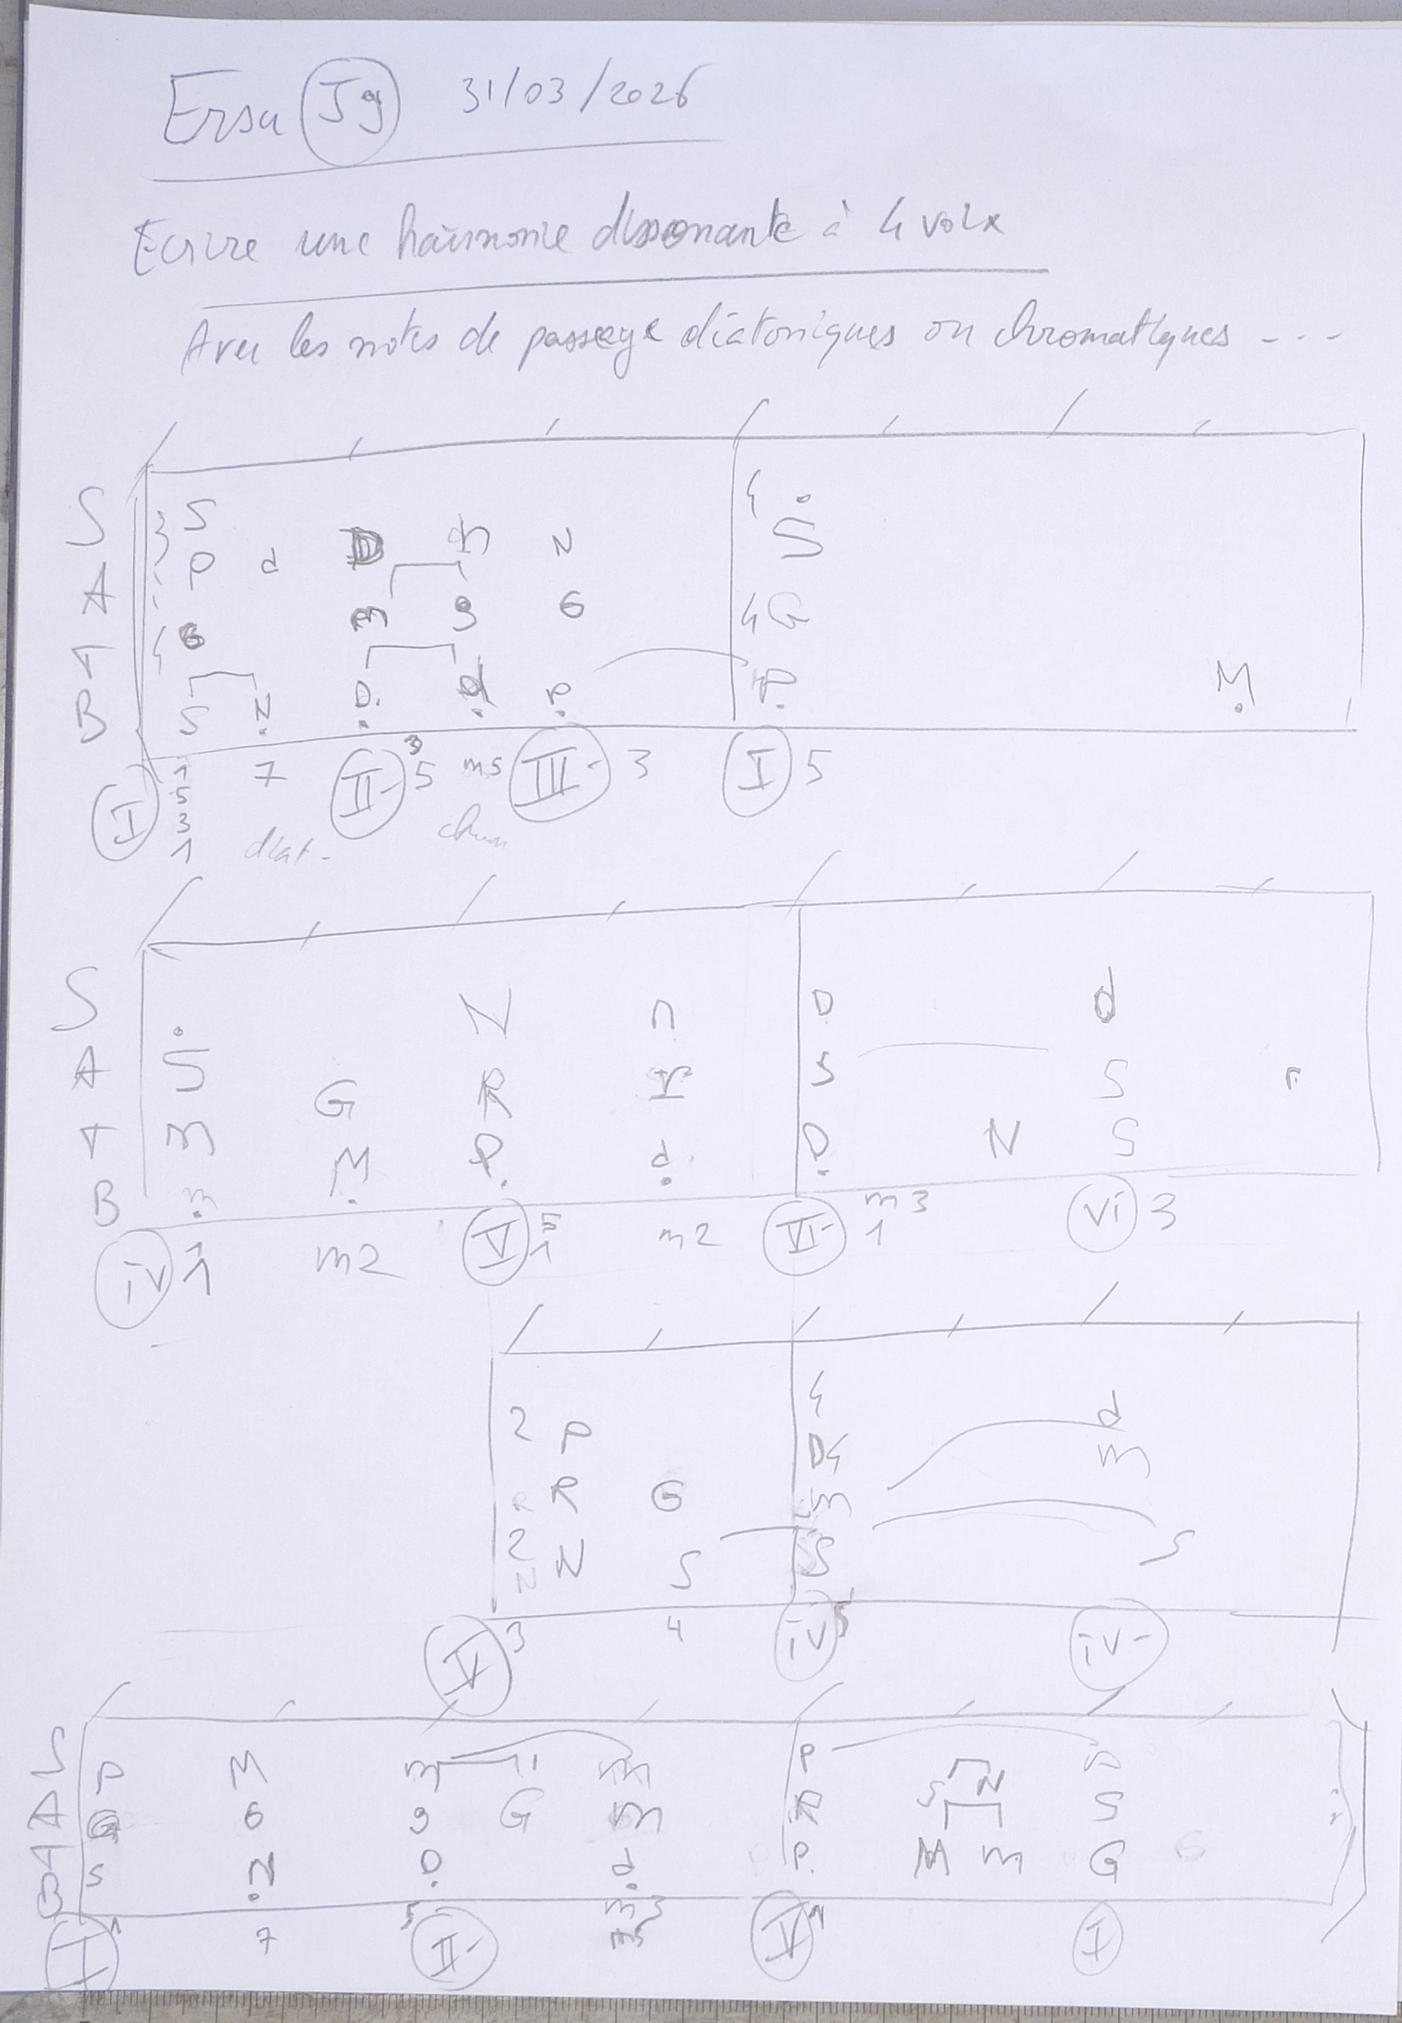 Ersu 59 31/03/2026
Ecrire une harmonie dissonante à 4 voix
Avec les notes de passage diatoniques ou chromatiques ---
S 3 S 4 S
A P d D n N
T G m g G 4 G
B 4 S N D d P P M
I 1 7 II- 3 5 m5 III- 3 I 5
5
3
1 diat- chrom
S S N n D d
A G R r S S r
T m M P d D N S
B m
iv 1 1 m2 V 5 1 m2 VI- m3 1 vi 3
2 P 4 d
R R G D 4 m
2 N N S m S S
V 3 4 iv 5 iv-
S P M m m P P
A G G g G m R S N S
T S N D d P M m G
B
I 1 7 5 II- m3 m5 V 1 I